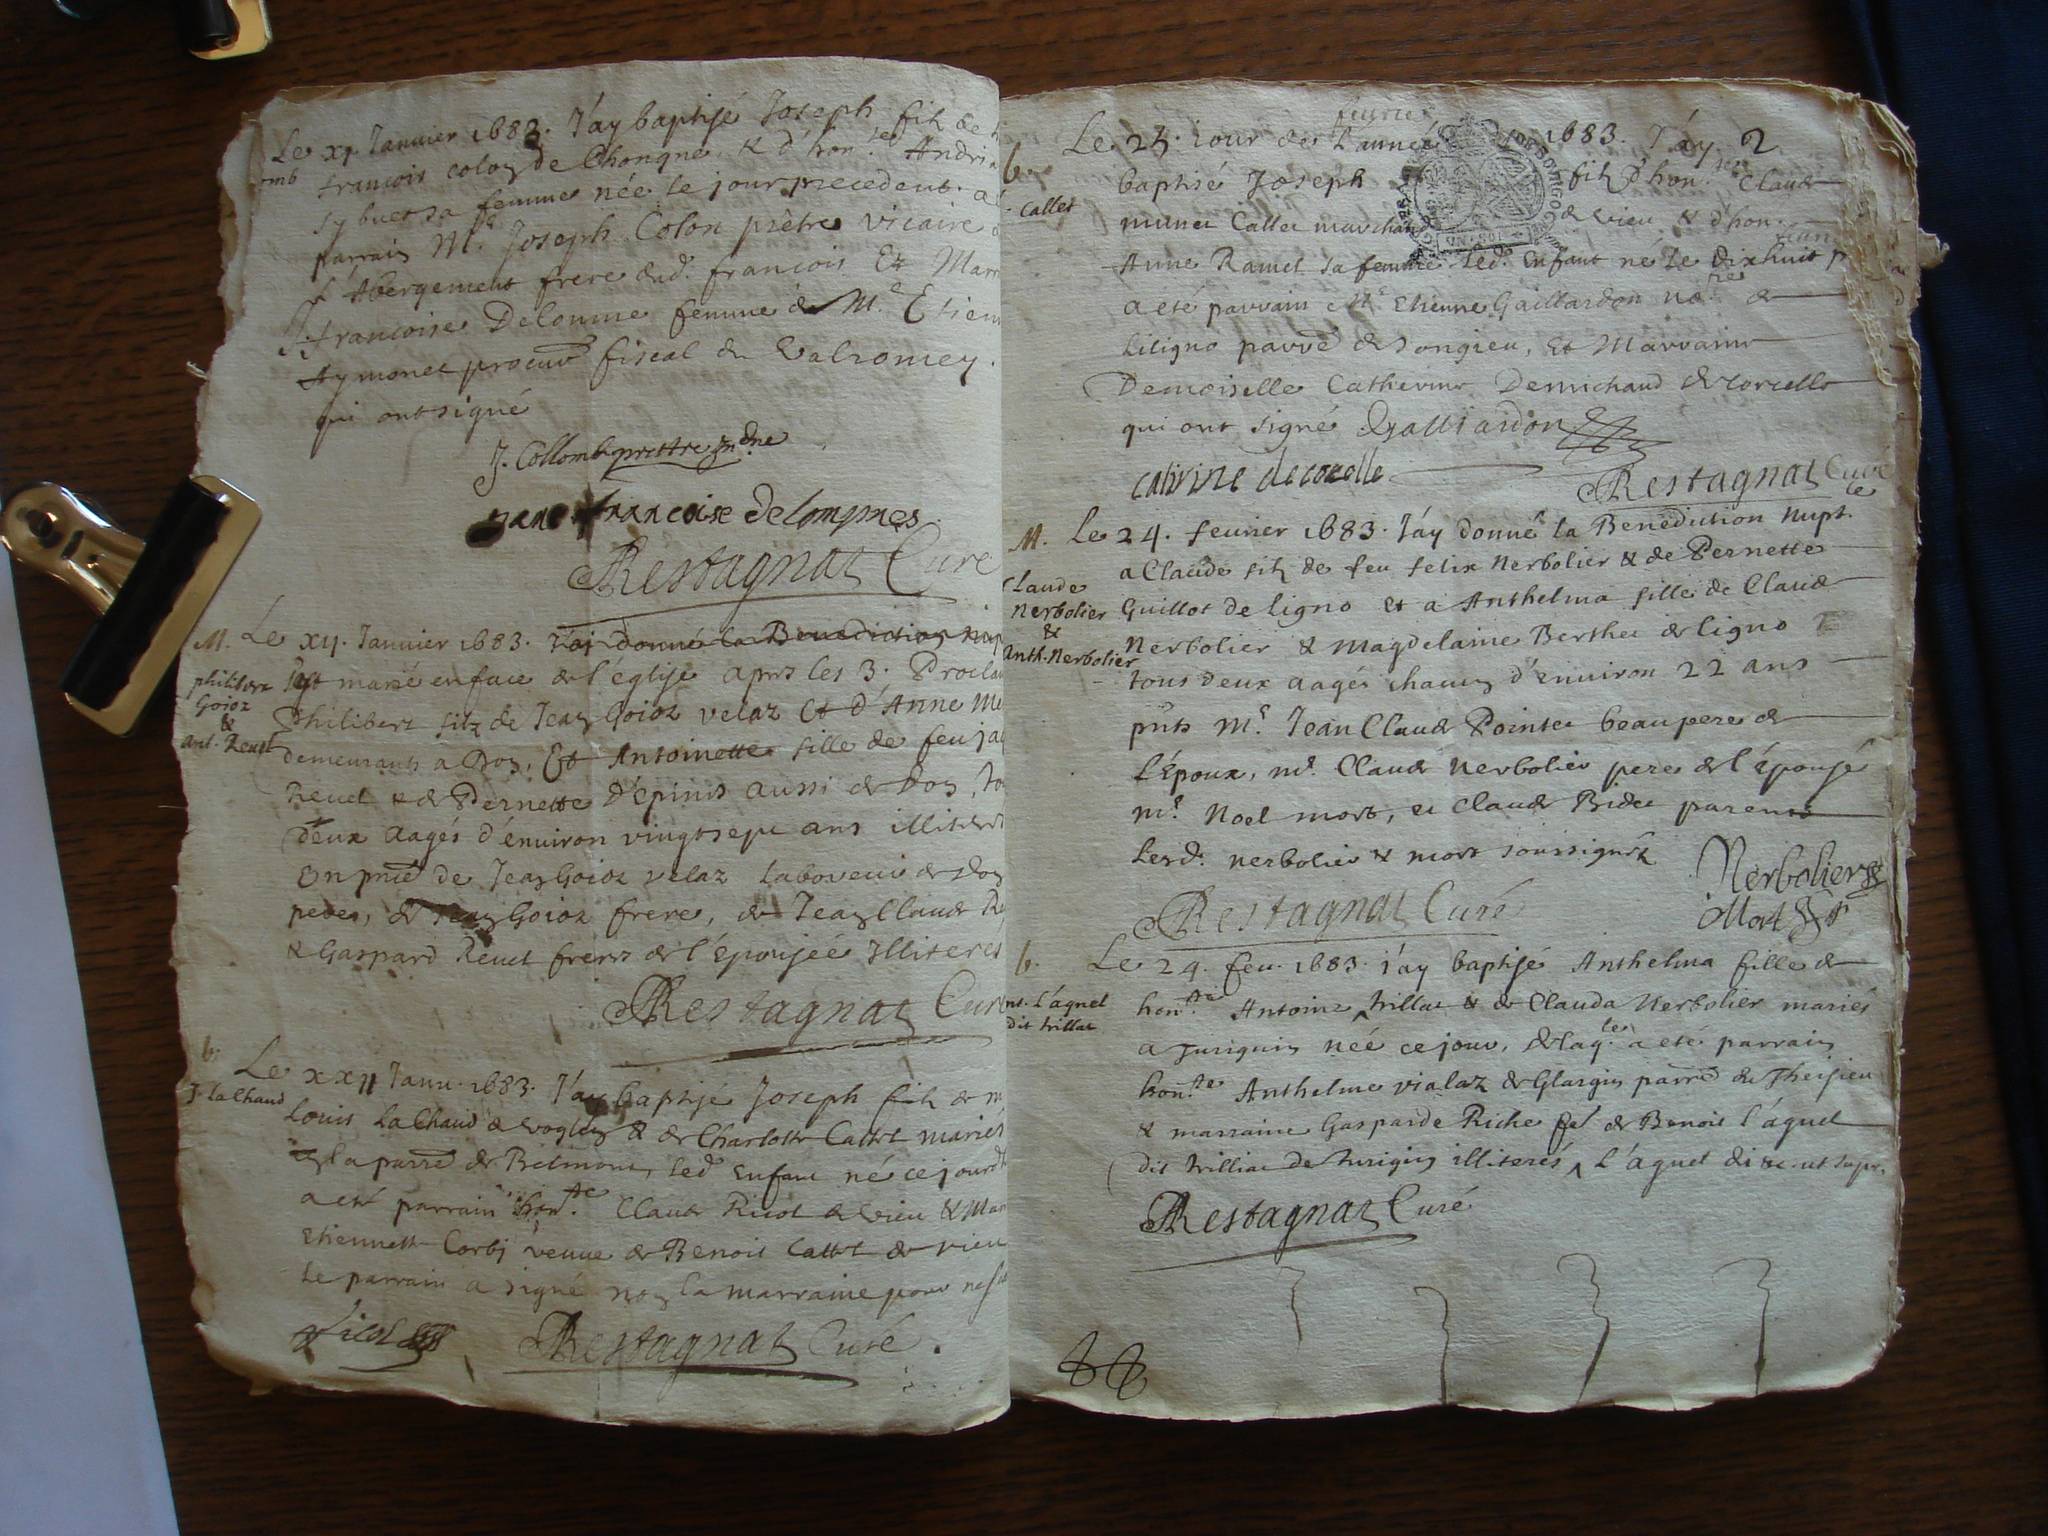 Le xj. Janvier 1683. J'ay baptisé Joseph filz de
omb
francois colon de Chongne, & d'hon.te Andri
sa femme née le jour precedent. a
parrain M.e Joseph Colon prêtre vicaire
l'Abergement frere dud. francois Et Marr
francoise Delomme femme de M.e Etien
Aymonet procur fiscal du Valromey.
qui ont signé
J. Collomb prettre
francoise delompnes
Restagnat Curé
M. Le xij. Janvier 1683. J'ai donné la Benediction nup
philibert
Goioz
&
Ant. Revet
s'est marié en face de l'église aprs les 3. Procla
Philibert filz de Jean Goioz velaz et d'Anne Me
demeurants a Don, Et Antoinette fille de feu ja
Revet & de Pernette D'épinis aussi de Don, to
deux aagés d'environ vingtsept ans illiterés
En pnce de Jean Goioz velaz laboureur de Don
peres, de Jean Goioz frere, de Jean Claude Re
& Gaspard Revet freres de l'épousée illiterés
Restagnat Curé
b.
J. la Chaud
Le xxij Janv. 1683. J'ay baptisé Joseph filz de m
Louis La Chaud de vogland & de Charlotte Callet mariés
en la parre de Belmont, led. Enfant né ce jourd
a esté parrain hon.te Claude Ricol de vieu & Mar
Etiennette Corbj veuve de Benoit Callet de vieu
Le parrain a signé non la marraine pour ne
Ricol
Restagnat Curé.
2
fevrier
b.
Callet
Le 25. jour de L'année 1683. J'ay
baptisé Joseph filz d'hon. Claude
Callet marchand de vieu & d'hon.
Anne Ramel sa femme. Led. Enfant né le dixhuit
a eté parrain M.e Etienne Gaillardon no.re de
Liligno parre de Songieu, Et Marraine
Demoiselle Catherine Demichaud de Corcelle
qui ont signé Dgalliardon
catirine decorcelle
Restagnat Curé
M.
Claude
Nerbolier
&
Anth. Nerbolier
Le 24. fevrier 1683. J'ay donné la Benediction Nupt.le
a Claude filz de feu felix Nerbolier & de Pernette
Guillot de ligno et a Anthelma fille de Claude
Nerbolier & Magdelaine Berthet de ligno
tous deux aagés chacun d'environ 22 ans
pnts m.e Jean Claude Pointet beaupere de
L'Epoux, m.e Claude Nerbolier pere de l'épousé
m.e Noel mort, et Claude Bidet parents
Lesd. nerbolier & mort soussignéz
Nerbolier
Mort
Restagnat Curé
b.
L'agnel
dit trillat
Le 24. fev. 1683. j'ay baptisé Anthelma fille de
hon.te Antoine trillat & de Claude Nerbolier mariés
a jurignin née ce jour, de laq.le a eté parrain
hon.te Anthelme vialaz de Glargin parre de Theisieu
& marraine Gasparde Riche fe de Benoit l'agnel
dit trilliat de Jurigin illiterés, L'agnel di &c. ut supr.
Restagnat Curé